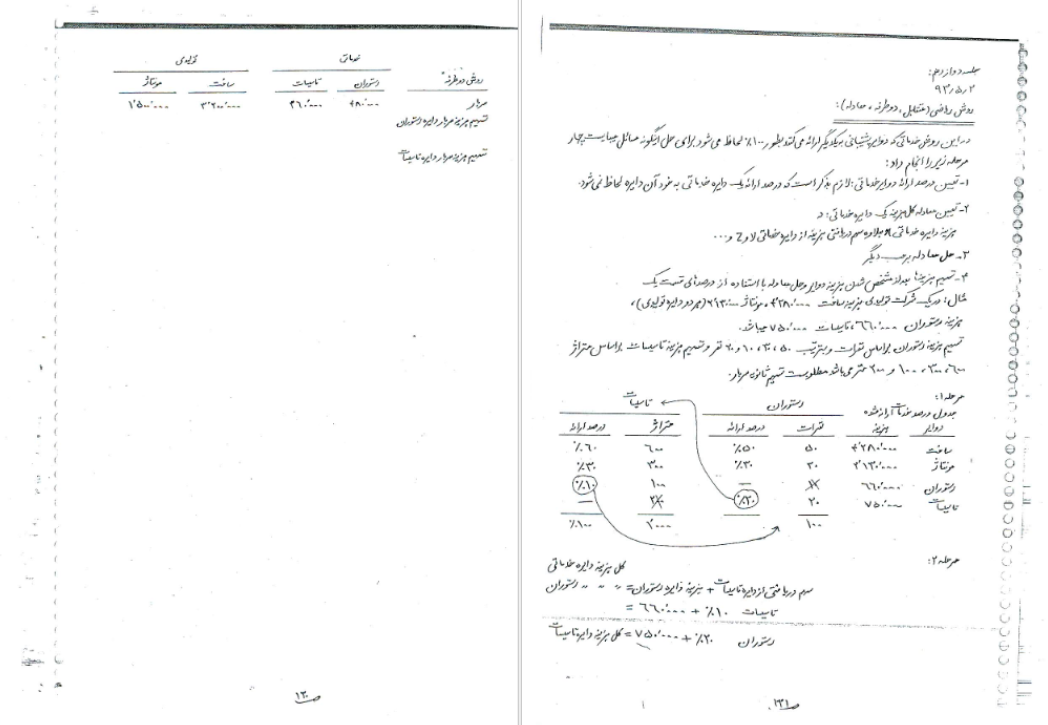 جلسه دوازدهم:
۹۳/۵/۲
روش ریاضی (متقابل، دوطرفه، معادله):
در این روش خدماتی که دوایر پشتیبانی به یکدیگر ارائه می‌کنند بطور ۱۰۰٪ لحاظ می‌شود برای حل اینگونه مسائل میبایست چهار
مرحله زیر را انجام داد:
۱- تعیین درصد ارائه دوایر خدماتی: لازم بذکر است که درصد ارائه یک دایره خدماتی به خود آن دایره لحاظ نمی‌شود.
۲- تعیین معادله کل هزینه یک دایره خدماتی:
هزینه دایره خدماتی x بعلاوه سهم دریافتی هزینه از دایره خدماتی y و z و ...
۳- حل معادله برحسب دیگر
۴- تسهیم هزینه‌ها بعد از مشخص شدن هزینه دوایر و حل معادله با استفاده از درصدهای قسمت یک
مثال: در یک شرکت تولیدی هزینه ساخت ۴٬۲۸۰٬۰۰۰، مونتاژ ۲٬۱۳۰٬۰۰۰ (هر دو دایره تولیدی)،
هزینه رستوران ۶۶۰٬۰۰۰، تاسیسات ۷۵۰٬۰۰۰ میباشد.
تسهیم هزینه رستوران براساس نفرات و بترتیب ۵۰، ۳۰، ۱۰ و ۲۰ نفر و تسهیم هزینه تاسیسات براساس متراژ
۶۰۰، ۳۰۰، ۱۰۰ و ۲۰۰ متر می‌باشد مطلوبست تسهیم ثانویه سربار.
مرحله ۱:
جدول درصد خدمات ارائه شده رستوران تاسیسات
دوایر هزینه نفرات درصد ارائه متراژ درصد ارائه
ساخت ۴٬۲۸۰٬۰۰۰ ۵۰ ٪۵۰ ۶۰۰ ٪۶۰
مونتاژ ۲٬۱۳۰٬۰۰۰ ۳۰ ٪۳۰ ۳۰۰ ٪۳۰
رستوران ۶۶۰٬۰۰۰ ۱۰ — ۱۰۰ ٪۱۰
تاسیسات ۷۵۰٬۰۰۰ ۲۰ ٪۲۰ ۲۰۰ —
۱۰۰ ۱٬۰۰۰ ٪۱۰۰
مرحله ۲:
کل هزینه دایره خدماتی
سهم دریافتی از دایره تاسیسات + هزینه دایره رستوران = " " " رستوران
تاسیسات ۱۰٪ + ۶۶۰٬۰۰۰ =
رستوران ۲۰٪ + ۷۵۰٬۰۰۰ = کل هزینه دایره تاسیسات
ص ۱۳۱
خدماتی تولیدی
روش دوطرفه رستوران تاسیسات ساخت مونتاژ
سربار ۴۸۰٬۰۰۰ ۳۶۰٬۰۰۰ ۳٬۲۰۰٬۰۰۰ ۱٬۵۰۰٬۰۰۰
تسهیم هزینه سربار دایره رستوران
تسهیم هزینه سربار دایره تاسیسات
ص ۱۳۰